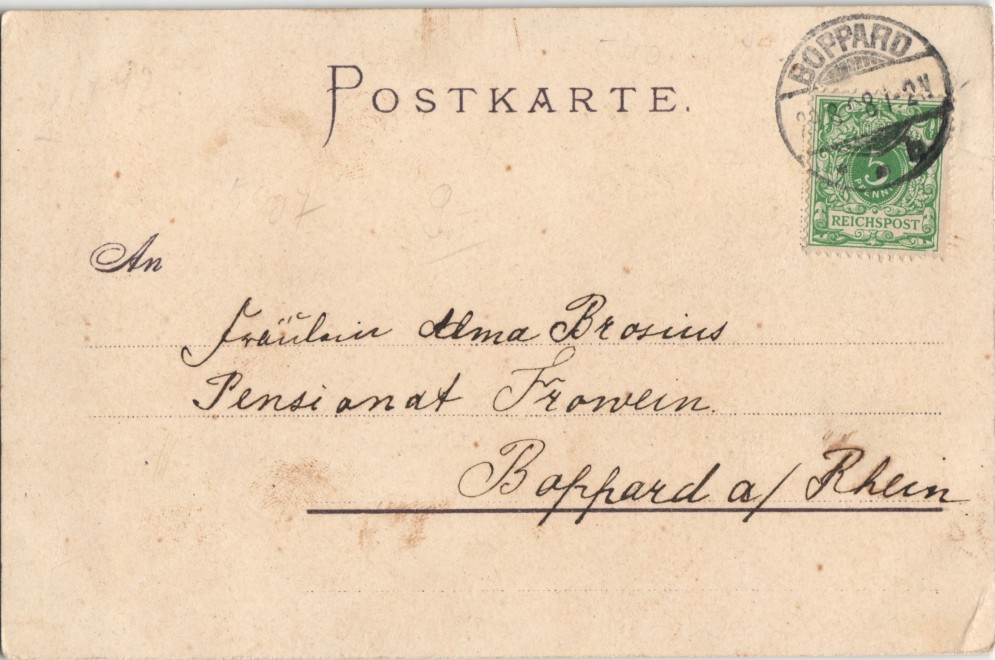 POSTKARTE.
BOPPARD
8 1-2N
5
PFENNIG
REICHSPOST
An
Fräulein Alma Brosius
Pensionat Frowein.
Boppard a/ Rhein